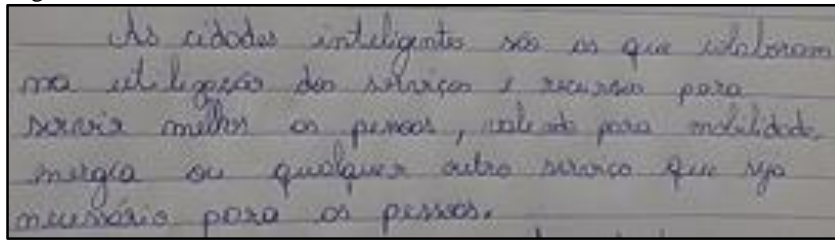 As cidades inteligentes são as que colaboram
na utilização dos serviços e recursos para
servir melhor as pessoas, valendo para mobilidade,
energia ou qualquer outro serviço que seja
necessário para as pessoas.